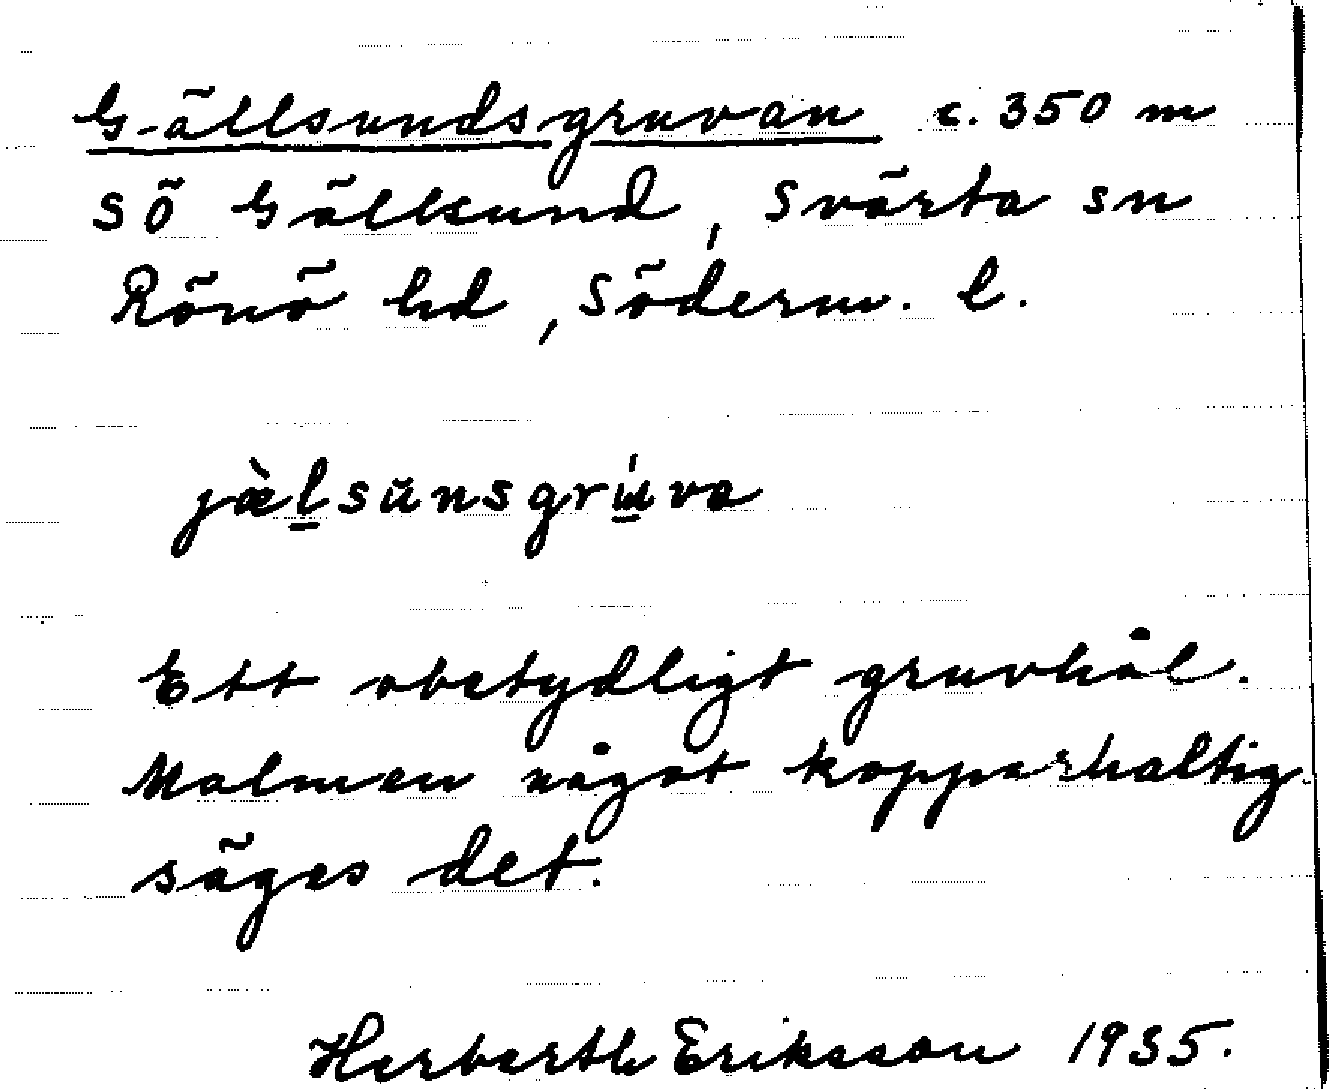 Gällsundsgruvan c. 350 m
SÖ Gällsund, Svärta sn
Rönö hd, Söderm. l.
jæ̀lsu̇nsgrúva
Ett obetydligt gruvhål.
Malmen något kopparhaltig
säges det.
Herberth Eriksson 1935.